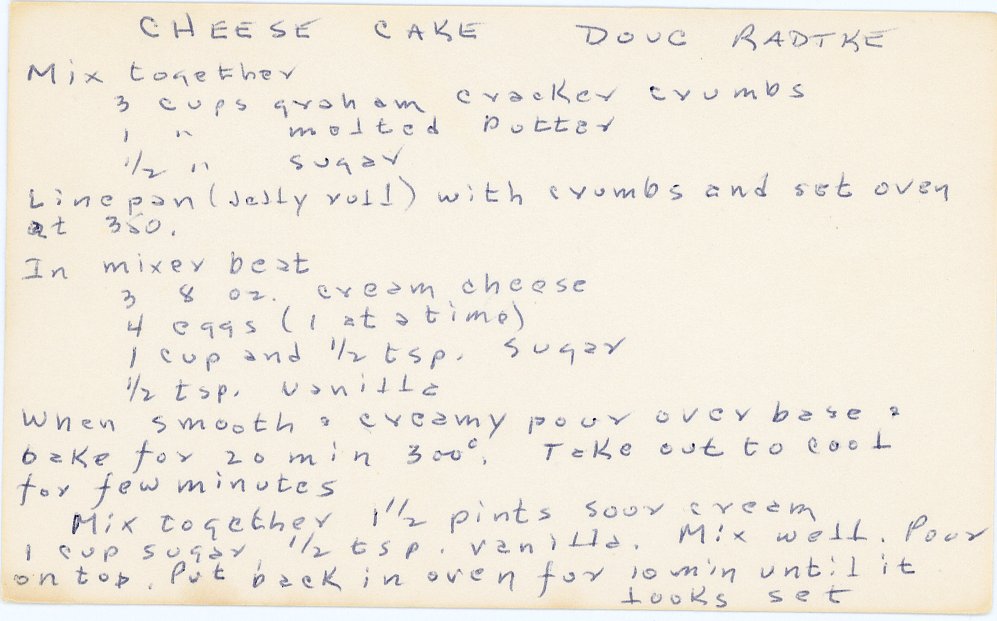 CHEESE CAKE DOUG RADTKE
Mix together
3 cups graham cracker crumbs
1 " melted butter
1/2 " sugar
Line pan (Jelly roll) with crumbs and set oven
at 350.
In mixer beat
3 8 oz. cream cheese
4 eggs (1 at a time)
1 cup and 1/2 tsp. sugar
1/2 tsp. vanilla
When smooth & creamy pour over base &
bake for 20 min 300°. Take out to cool
for few minutes
Mix together 1 1/2 pints sour cream
1 cup sugar, 1/2 tsp. vanilla. Mix well. Pour
on top. Put back in oven for 10 min until it
looks set